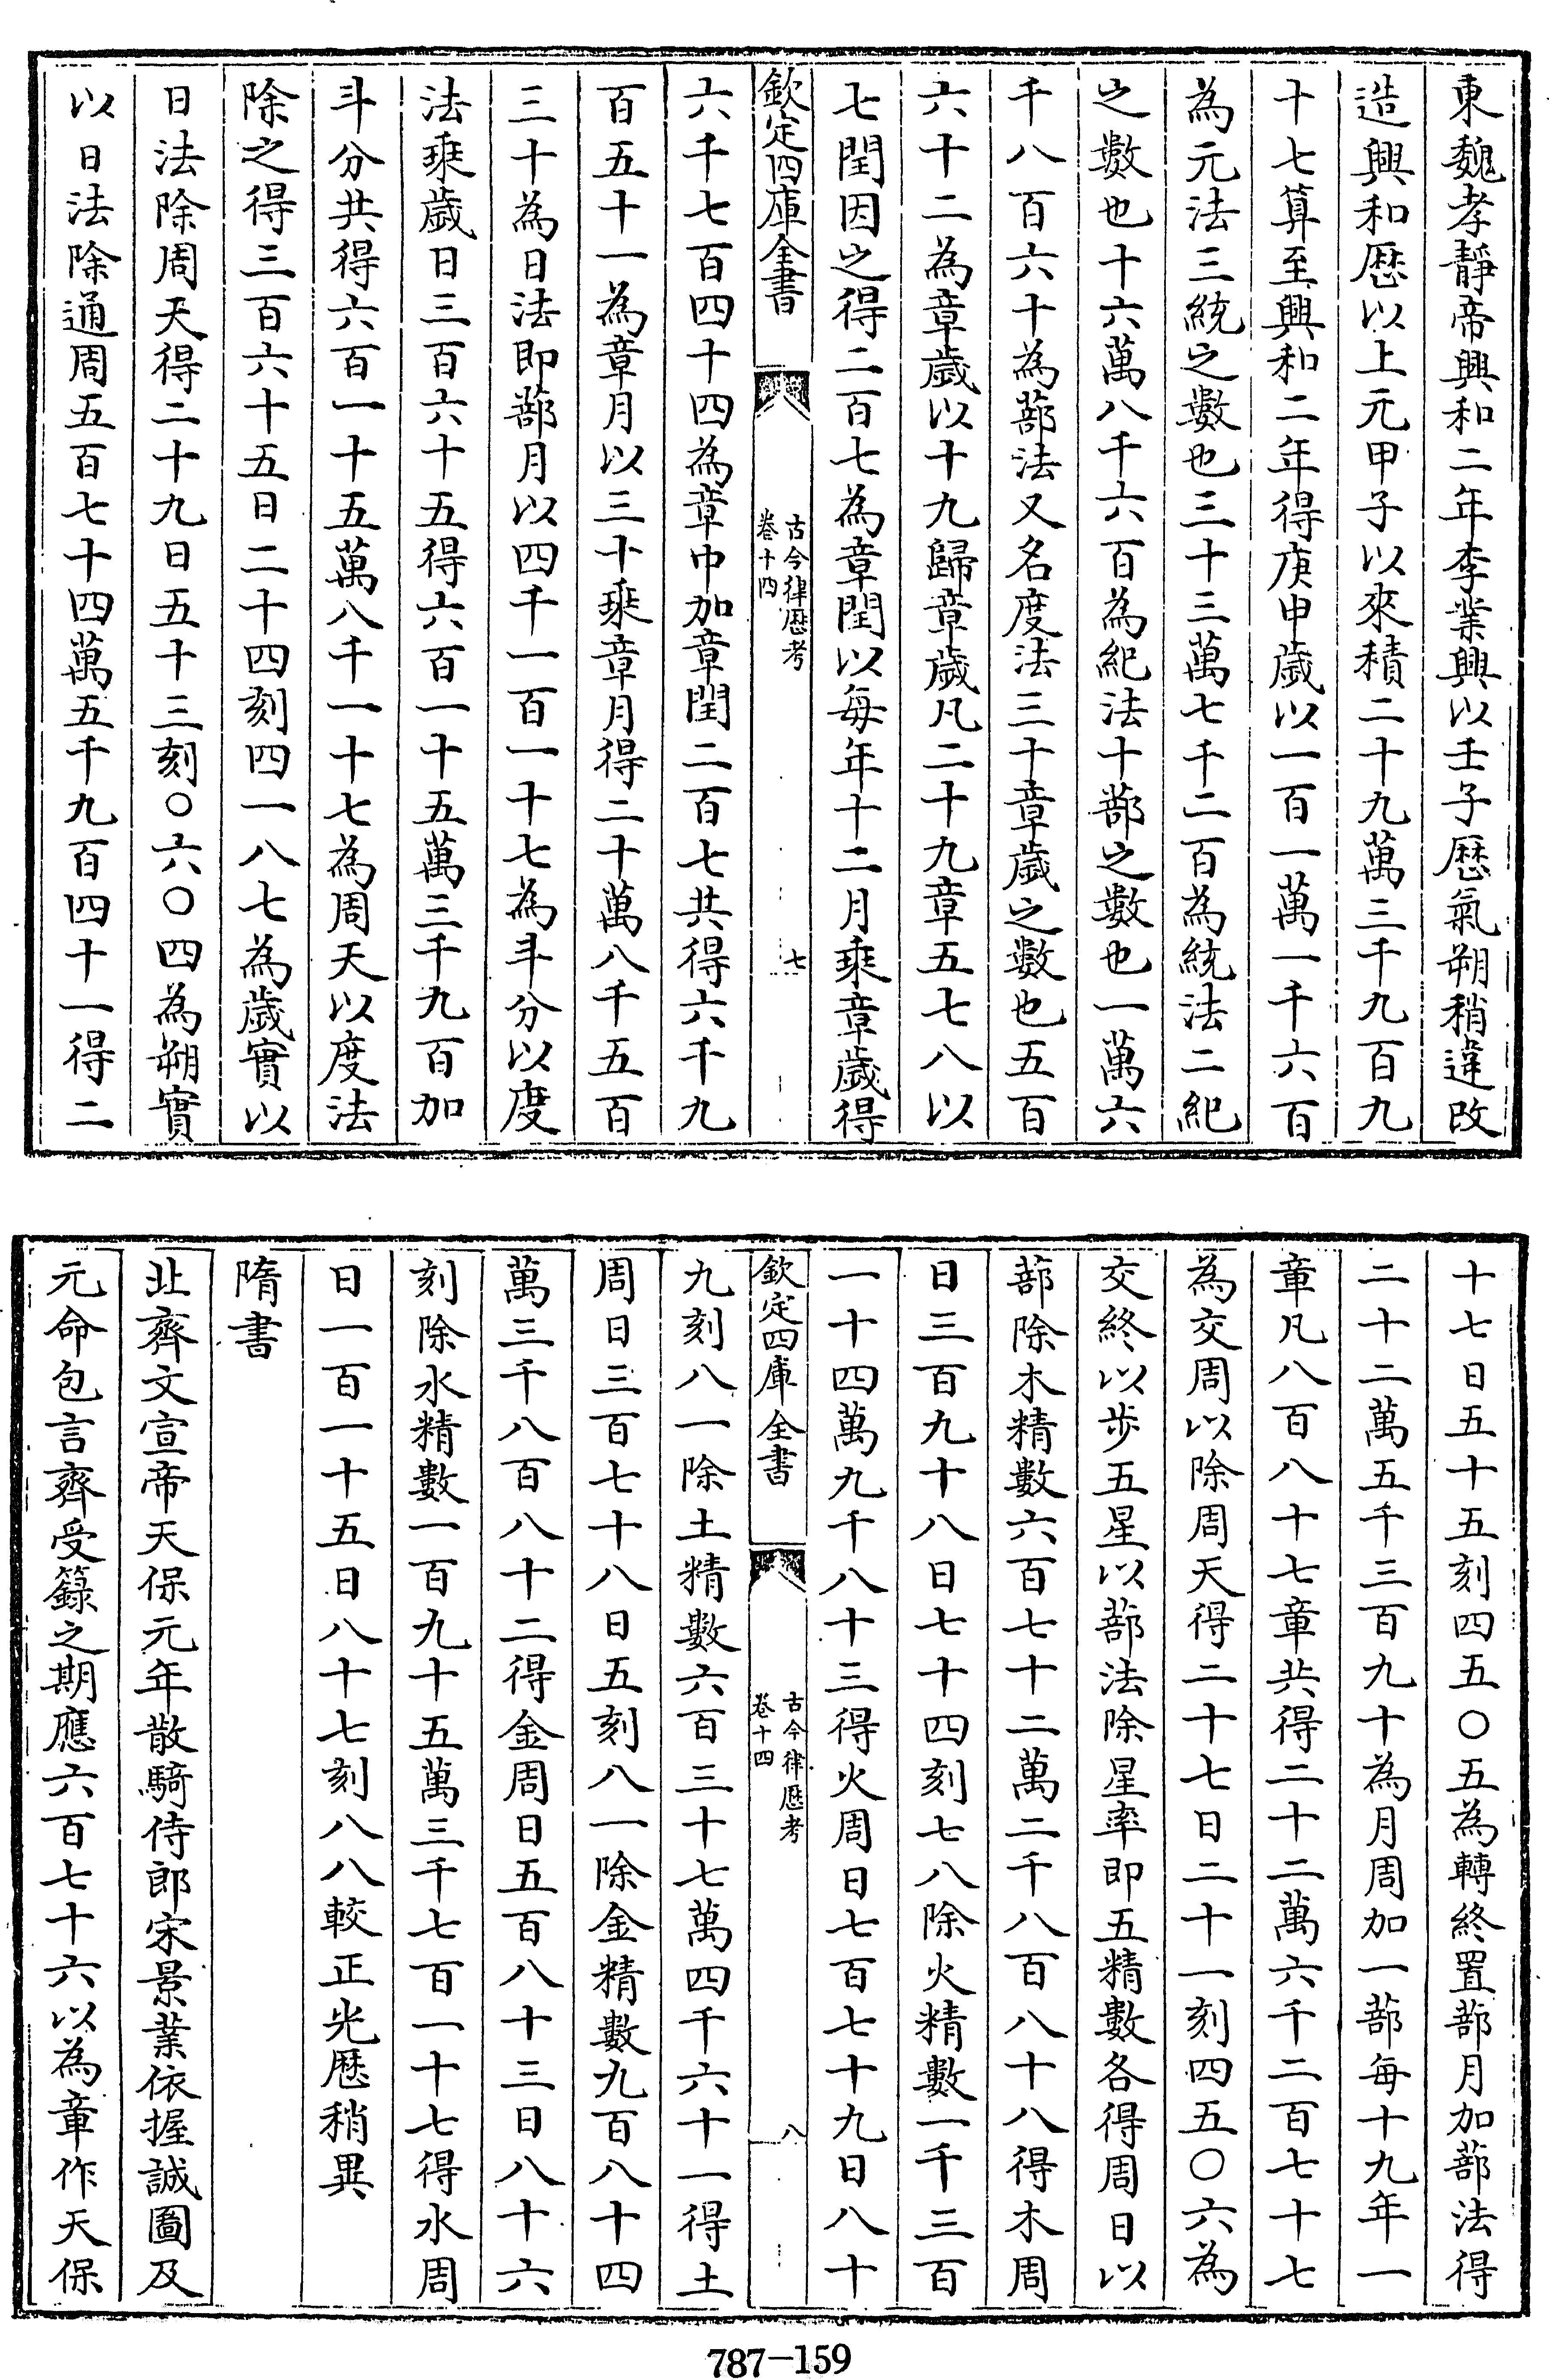 東魏孝靜帝興和二年李業興以壬子厯氣朔稍違改
造興和厯以上元甲子以來積二十九萬三千九百九
十七算至興和二年得庚申歲以一百一萬一千六百
為元法三統之數也三十三萬七千二百為統法二紀
之數也十六萬八千六百為紀法十蔀之數也一萬六
千八百六十為蔀法又名度法三十章歲之數也五百
六十二為章歲以十九歸章歲凡二十九章五七八以
七閏因之得二百七為章閏以每年十二月乘章歲得
欽定四庫全書
古今律厯考
卷十四
七
六千七百四十四為章中加章閏二百七共得六千九
百五十一為章月以三十乘章月得二十萬八千五百
三十為日法即蔀月以四千一百一十七為斗分以度
法乘歲日三百六十五得六百一十五萬三千九百加
斗分共得六百一十五萬八千一十七為周天以度法
除之得三百六十五日二十四刻四一八七為歲實以
日法除周天得二十九日五十三刻〇六〇四為朔實
以日法除通周五百七十四萬五千九百四十一得二
十七日五十五刻四五〇五為轉終置蔀月加蔀法得
二十二萬五千三百九十為月周加一蔀每十九年一
章凡八百八十七章共得二十二萬六千二百七十七
為交周以除周天得二十七日二十一刻四五〇六為
交終以步五星以蔀法除星率即五精數各得周日以
蔀除木精數六百七十二萬二千八百八十八得木周
日三百九十八日七十四刻七八除火精數一千三百
一十四萬九千八十三得火周日七百七十九日八十
欽定四庫全書
古今律厯考
卷十四
八
九刻八一除土精數六百三十七萬四千六十一得土
周日三百七十八日五刻八一除金精數九百八十四
萬三千八百八十二得金周日五百八十三日八十六
刻除水精數一百九十五萬三千七百一十七得水周
日一百一十五日八十七刻八八較正光厯稍異
隋書
北齊文宣帝天保元年散騎侍郎宋景業依握誠圖及
元命包言齊受籙之期應六百七十六以為章作天保
787-159